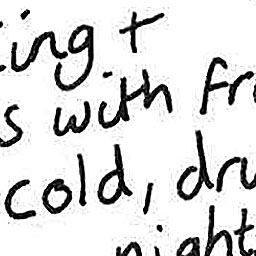 ing +
s with fr
cold, dru
night